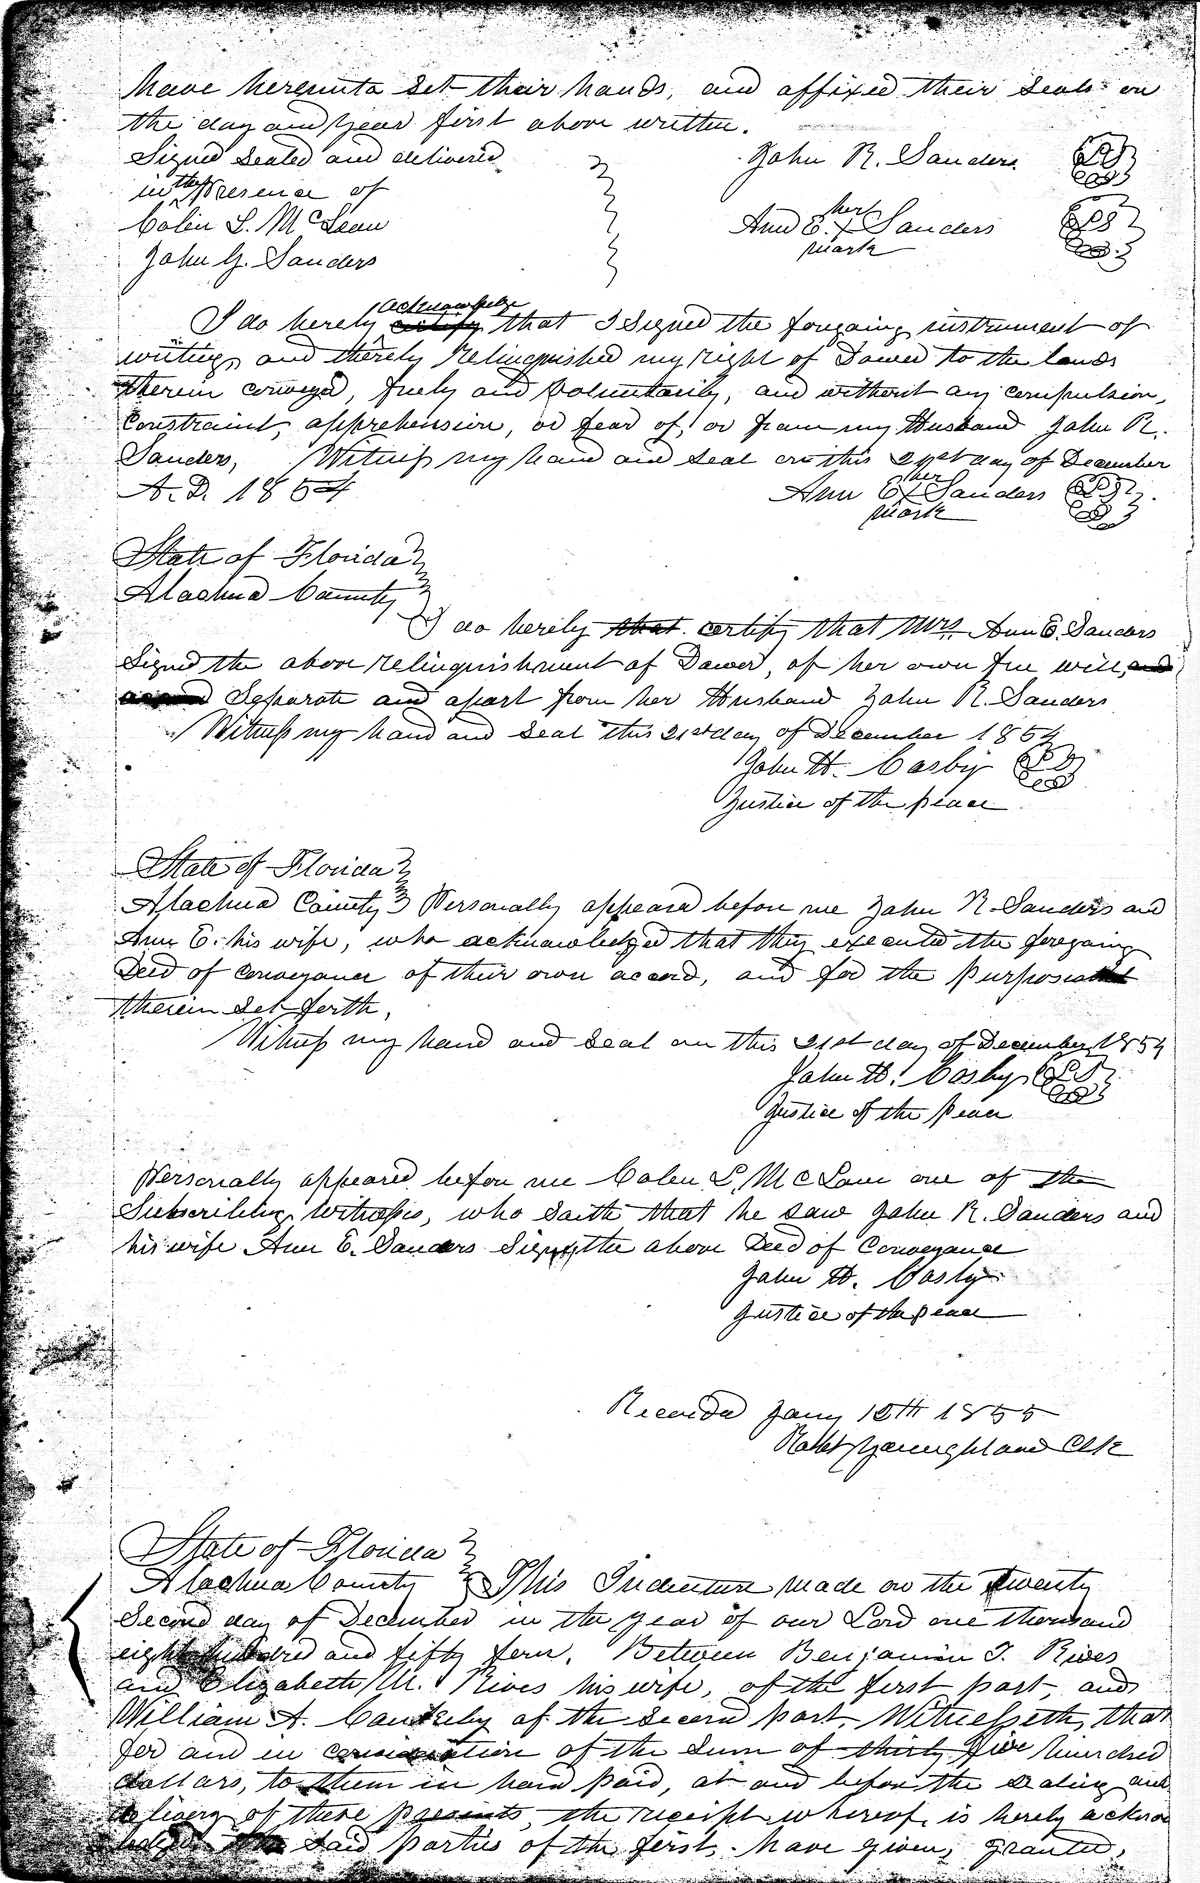 have hereunto set their hands, and affixed their seals on
the day and year first above written.
Signed sealed and delivered John R. Sanders LS
in the presence of
Colin L. McLean Ann E. her X mark Sanders LS
John G. Sanders
I do hereby acknowledge certify that I signed the foregoing instrument of
writing, and thereby relinquished my right of Dower to the lands
therein conveyed, freely and voluntarily, and without any compulsion,
constraint, apprehension, or fear of, or from my Husband John R.
Sanders, Witness my hand and seal on this 21st day of December
A.D. 1854 Ann E. her X mark Sanders LS
State of Florida
Alachua County
I do hereby that certify that Mrs. Ann E. Sanders
signed the above relinquishment of Dower, of her own free will, and
Separate and apart from her Husband John R. Sanders
Witness my hand and seal this 21st day of December 1854
John H. Cosby LS
Justice of the peace
State of Florida
Alachua County Personally appeared before me John R. Sanders and
Ann E. his wife, who acknowledged that they executed the foregoing
Deed of conveyance of their own accord, and for the purposes
therein set forth,
Witness my hand and seal on this 21st day of December 1854
John H. Cosby LS
Justice of the Peace
Personally appeared before me Colen L. McLean one of the
Subscribing witnesses, who saith that he saw John R. Sanders and
his wife Ann E. Sanders Sign the above Deed of Conveyance
John H. Cosby
Justice of the Peace
Recorded Jany 12th 1855
Clk
State of Florida
Alachua County This Indenture made on the twenty
Second day of December in the year of our Lord one thousand
eight hundred and fifty four. Between Benjamin T. Rives
and Elizabeth M. Rives his wife, of the first part, and
William A. of the second part, Witnesseth, that
for and in consideration of the sum of thirty five hundred
dollars, to them in hand paid, at and before the sealing and
delivery of these presents, the receipt whereof, is hereby acknow
said parties of the first, have given, granted,